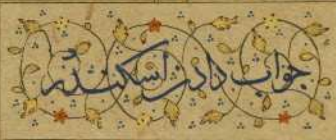 جواب دادن اسکندر